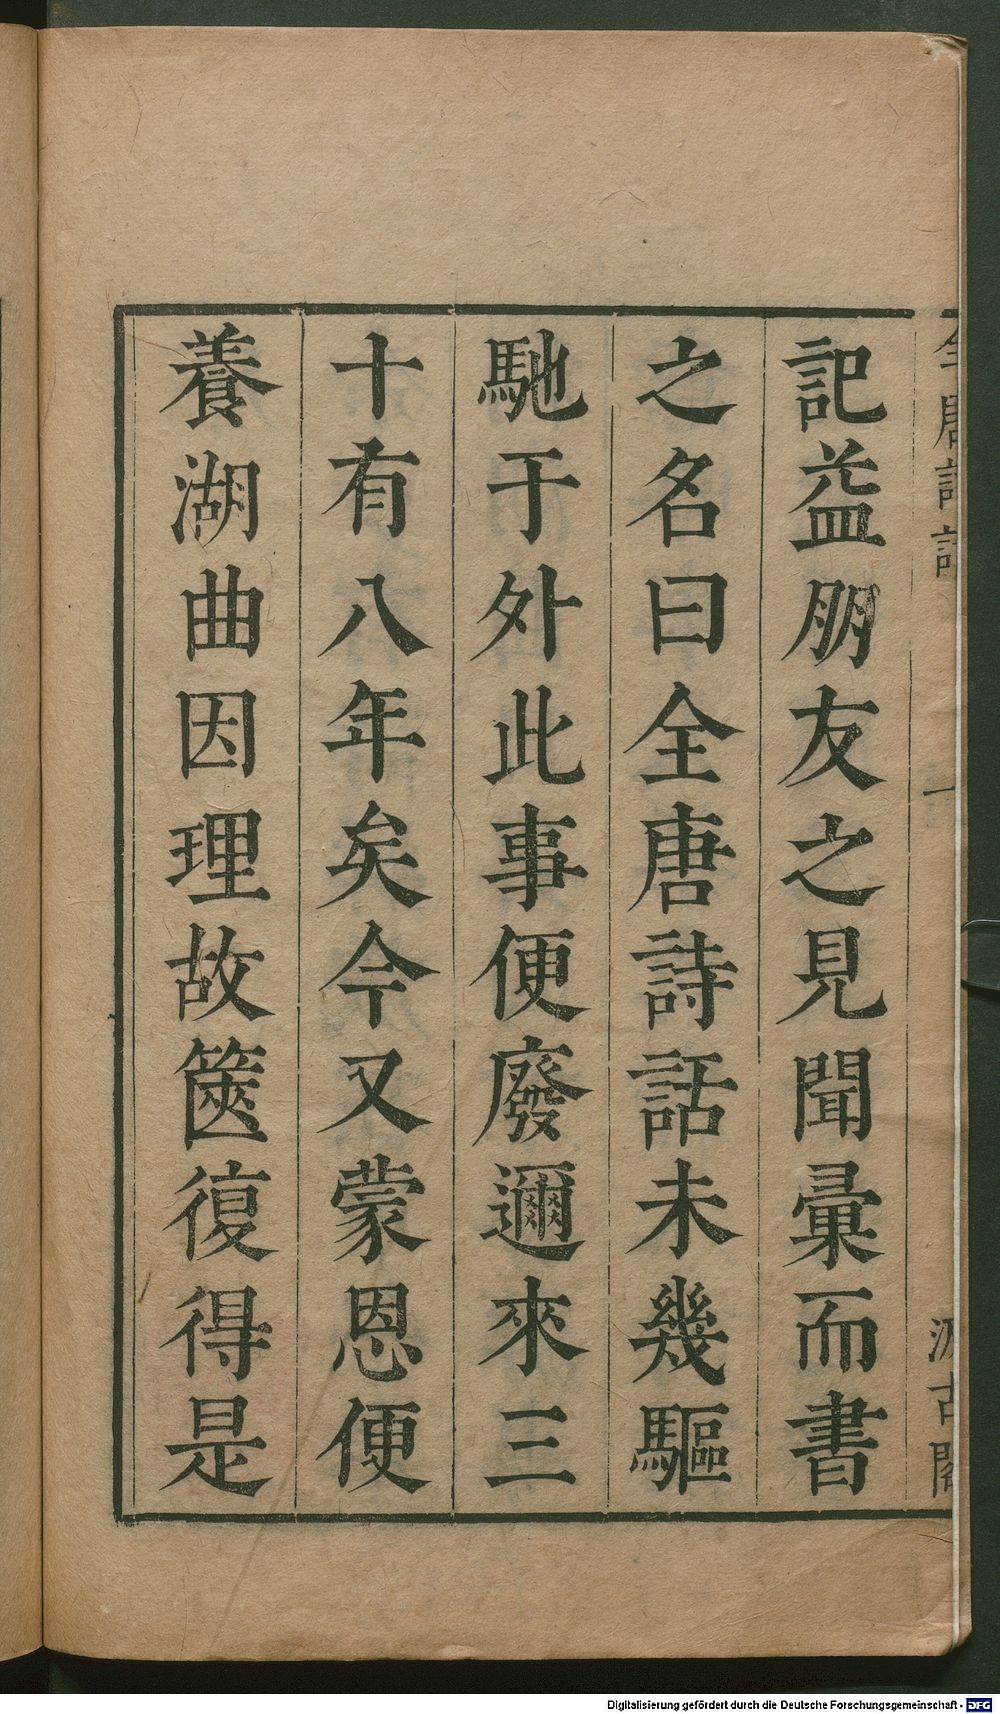 全唐詩話
一
汲古閣
記益朋友之見聞彙而書
之名曰全唐詩話未幾驅
馳于外此事便廢邇來三
十有八年矣今又蒙恩便
養湖曲因理故篋復得是
Digitalisierung gefördert durch die Deutsche Forschungsgemeinschaft - DFG